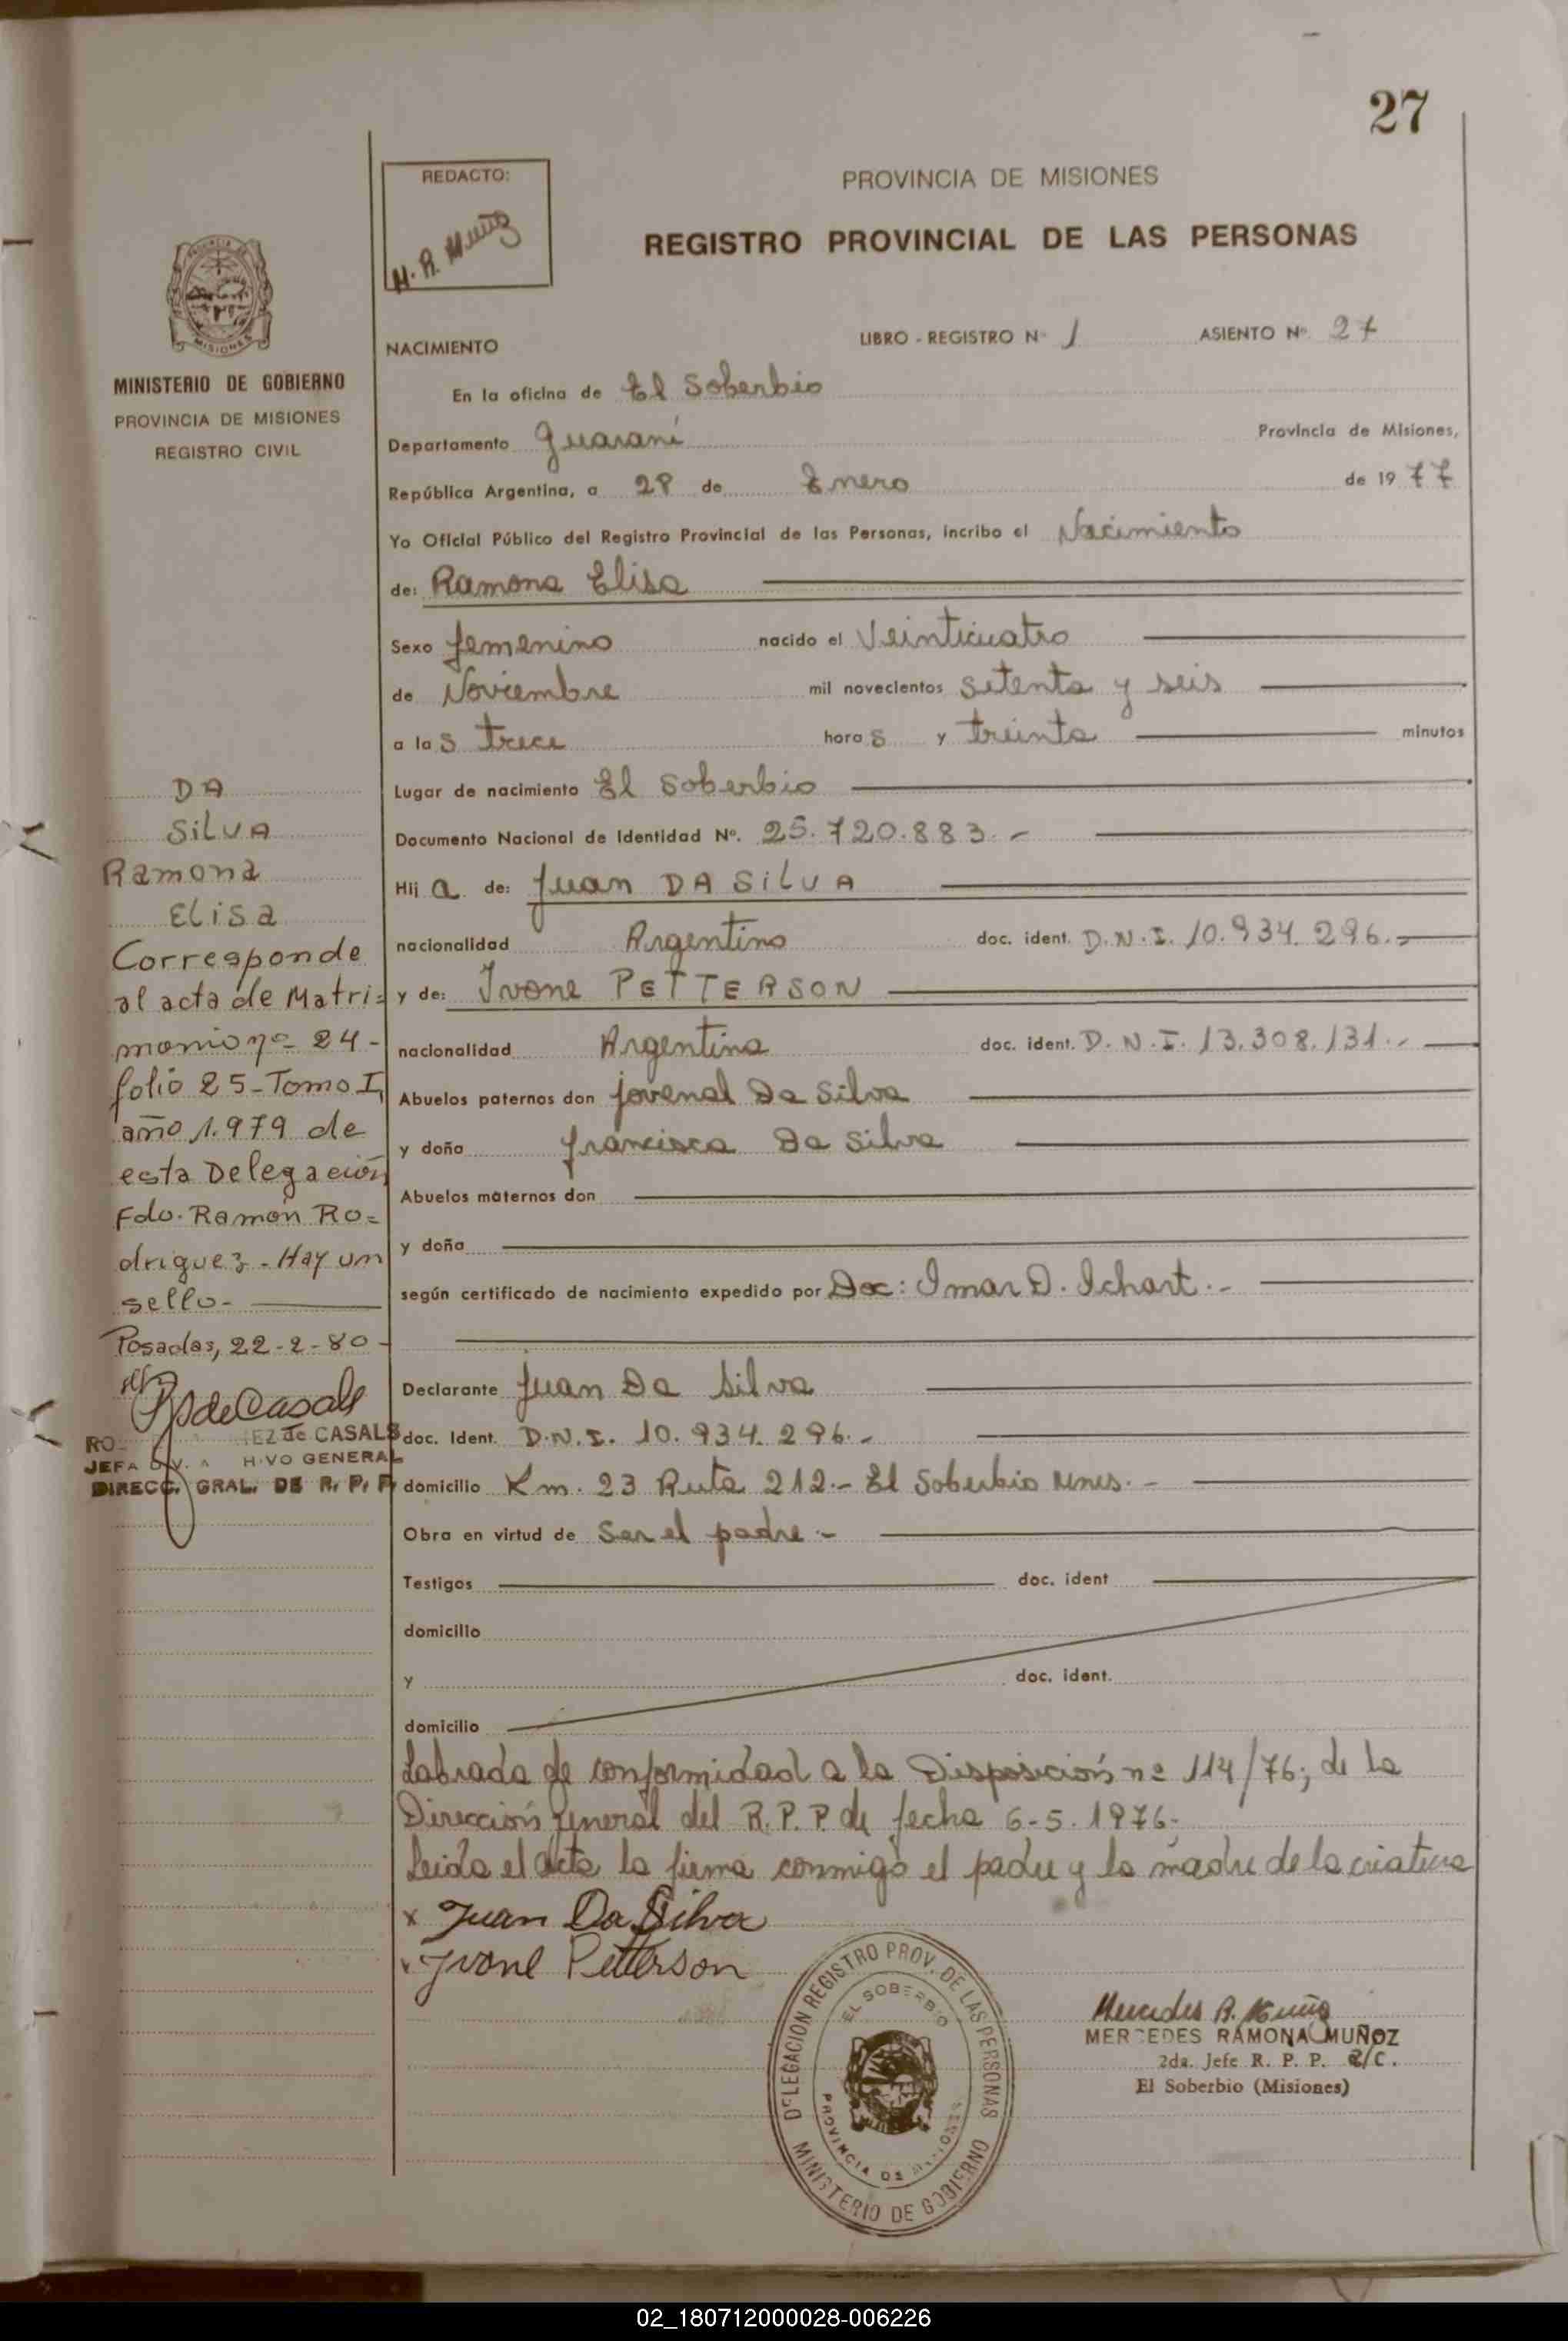 27
REDACTO:
M. R. Muñoz
PROVINCIA DE MISIONES
REGISTRO PROVINCIAL DE LAS PERSONAS
MISIONES
MINISTERIO DE GOBIERNO
PROVINCIA DE MISIONES
REGISTRO CIVIL
NACIMIENTO LIBRO - REGISTRO Nº 1 ASIENTO Nº 27
En la oficina de El Soberbio
Departamento Guaraní Provincia de Misiones,
República Argentina, a 28 de Enero de 1977
Yo Oficial Público del Registro Provincial de las Personas, incribo el Nacimiento
de: Ramona Elisa
Sexo femenino nacido el Veinticuatro
de Noviembre mil novecientos setenta y seis
a las trece horas y treinta minutos
Lugar de nacimiento El Soberbio
Documento Nacional de Identidad Nº. 25.720.883.-
Hija de: Juan DA SILVA
nacionalidad Argentino doc. ident. D.N.I. 10.934.296.-
y de: Ivone PETTERSON
nacionalidad Argentina doc. ident. D.N.I. 13.308.131.-
Abuelos paternos don Jovenal Da Silva
y doña Francisca Da Silva
Abuelos maternos don
y doña
según certificado de nacimiento expedido por Doc: Imar D. Ichart.-
Declarante Juan Da Silva
doc. Ident. D.N.I. 10.934.296.-
domicilio Km. 23 Ruta 212.- El Soberbio Mnes.-
Obra en virtud de Ser el padre.-
Testigos doc. ident
domicilio
y doc. ident.
domicilio
Labrada de conformidad a la Disposición nº 114/76; de la
Dirección General del R.P.P. de fecha 6-5.1976.-
Leida el acta la firma conmigo el padre y la madre de la criatura
x Juan Da Silva
x Ivone Petterson
DA
SILVA
Ramona
Elisa
Corresponde
al acta de Matri=
monio nº 24-
folio 25-Tomo I,
año 1.979 de
esta Delegación
Fdo. Ramón Ro=
driguez.-Hay un
sello-
Posadas, 22-2-80-
de Casals
EZ de CASALS
JEFA DIV. A H.VO GENERAL
DIRECC. GRAL. DE R. P. P
DELEGACION REGISTRO PROV. DE LAS PERSONAS
EL SOBERBIO
PROVINCIA DE MISIONES
MINISTERIO DE GOBIERNO
Mercedes R. Muñoz
MERCEDES RAMONA MUÑOZ
2da. Jefe R. P. P. a/c.
El Soberbio (Misiones)
02_180712000028-006226